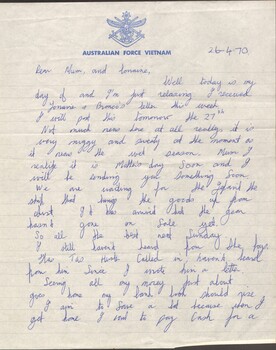 AUSTRALIAN FORCE VIETNAM
26-4-70
Dear Mum, and Lorraine,
Well today is my
day off and I'm just relaxing I received
Lorraine & letter this week
I will post this tomorrow the 27TH
Not much news here at all really it is
very muggy and sweaty at the moment as
it is now the wet season. Mum I
realise it is Mothers day Soon and I
will be sending you something Soon.
We are waiting for the
ship that brings the goods up from
it has arrived but the gear
hasn't gone on Sale yet.
So all the best next Sunday
I still haven't heard from the boys
haven't heard
from him Since I wrote him a letter.
Seeing all my money just about
goes home my bank book should rise
I aim to Save a lot because when I
get home I want to pay Cash for a